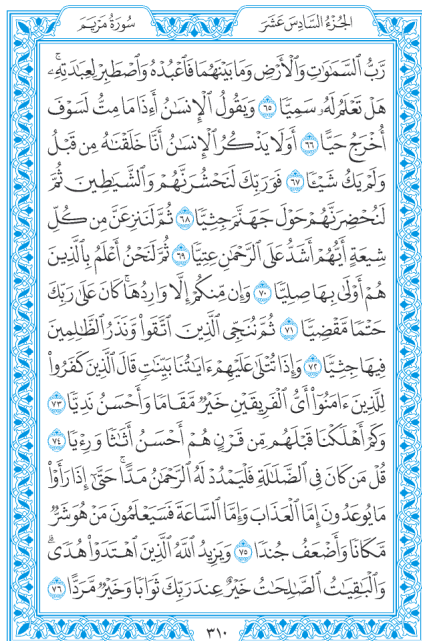 الجُزْءُ السَّادِسَ عَشَرَ
سُورَةُ مَرْيَمَ
رَّبُّ ٱلسَّمَٰوَٰتِ وَٱلْأَرْضِ وَمَا بَيْنَهُمَا فَٱعْبُدْهُ وَٱصْطَبِرْ لِعِبَٰدَتِهِۦۚ
هَلْ تَعْلَمُ لَهُۥ سَمِيًّا ٦٥ وَيَقُولُ ٱلْإِنسَٰنُ أَءِذَا مَا مِتُّ لَسَوْفَ
أُخْرَجُ حَيًّا ٦٦ أَوَلَا يَذْكُرُ ٱلْإِنسَٰنُ أَنَّا خَلَقْنَٰهُ مِن قَبْلُ
وَلَمْ يَكُ شَيْـًٔا ٦٧ فَوَرَبِّكَ لَنَحْشُرَنَّهُمْ وَٱلشَّيَٰطِينَ ثُمَّ
لَنُحْضِرَنَّهُمْ حَوْلَ جَهَنَّمَ جِثِيًّا ٦٨ ثُمَّ لَنَنزِعَنَّ مِن كُلِّ
شِيعَةٍ أَيُّهُمْ أَشَدُّ عَلَى ٱلرَّحْمَٰنِ عِتِيًّا ٦٩ ثُمَّ لَنَحْنُ أَعْلَمُ بِٱلَّذِينَ
هُمْ أَوْلَىٰ بِهَا صِلِيًّا ٧٠ وَإِن مِّنكُمْ إِلَّا وَارِدُهَاۚ كَانَ عَلَىٰ رَبِّكَ
حَتْمًا مَّقْضِيًّا ٧١ ثُمَّ نُنَجِّى ٱلَّذِينَ ٱتَّقَوا۟ وَّنَذَرُ ٱلظَّٰلِمِينَ
فِيهَا جِثِيًّا ٧٢ وَإِذَا تُتْلَىٰ عَلَيْهِمْ ءَايَٰتُنَا بَيِّنَٰتٍ قَالَ ٱلَّذِينَ كَفَرُوا۟
لِلَّذِينَ ءَامَنُوٓا۟ أَىُّ ٱلْفَرِيقَيْنِ خَيْرٌ مَّقَامًا وَأَحْسَنُ نَدِيًّا ٧٣
وَكَمْ أَهْلَكْنَا قَبْلَهُم مِّن قَرْنٍ هُمْ أَحْسَنُ أَثَٰثًا وَرِءْيًا ٧٤
قُلْ مَن كَانَ فِى ٱلضَّلَٰلَةِ فَلْيَمْدُدْ لَهُ ٱلرَّحْمَٰنُ مَدًّاۚ حَتَّىٰٓ إِذَا رَأَوْا۟
مَا يُوعَدُونَ إِمَّا ٱلْعَذَابَ وَإِمَّا ٱلسَّاعَةَ فَسَيَعْلَمُونَ مَنْ هُوَ شَرٌّ
مَّكَانًا وَأَضْعَفُ جُندًا ٧٥ وَيَزِيدُ ٱللَّهُ ٱلَّذِينَ ٱهْتَدَوْا۟ هُدًىۗ
وَٱلْبَٰقِيَٰتُ ٱلصَّٰلِحَٰتُ خَيْرٌ عِندَ رَبِّكَ ثَوَابًا وَخَيْرٌ مَّرَدًّا ٧٦
٣١٠